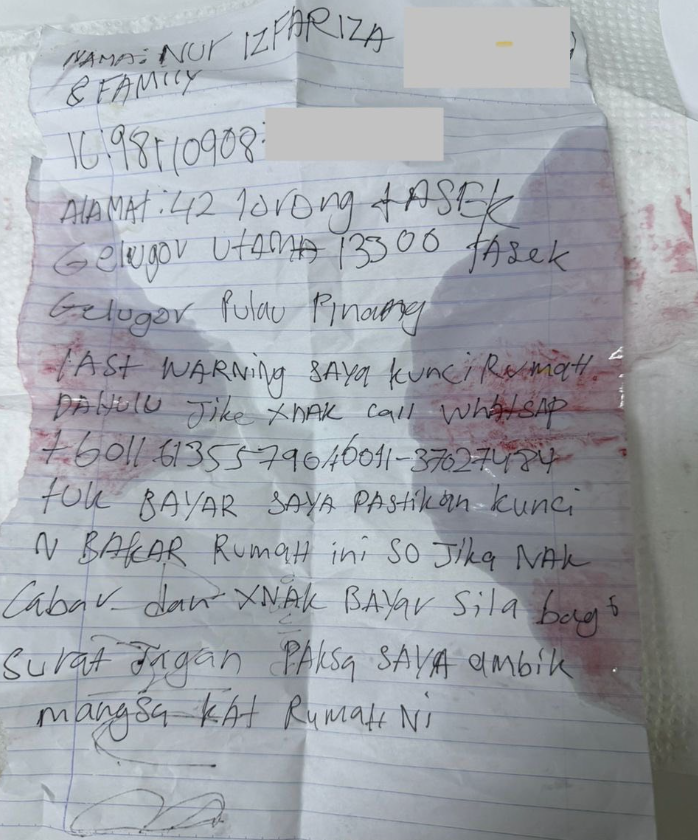 NAMA: NUR IZFARIZA
& FAMILY
IC: 98110908
ALAMAT: 42 lorong tASEK
Gelugor UtAMA 13300 tAsek
Gelugor Pulau Pinang
LASt WARNing SAYA kunci RumaH
DAHULU Jike XNAK call WhatSAP
+601161355790/6011-37027484
tUK BAYAR SAYA PAStikan kunci
N BAKAR RumaH ini SO Jika NAK
Cabar dan XNAK BAYar Sila bagi
Surat Jagan PAKSa SAYA ambik
mangSa KAt RumaH Ni